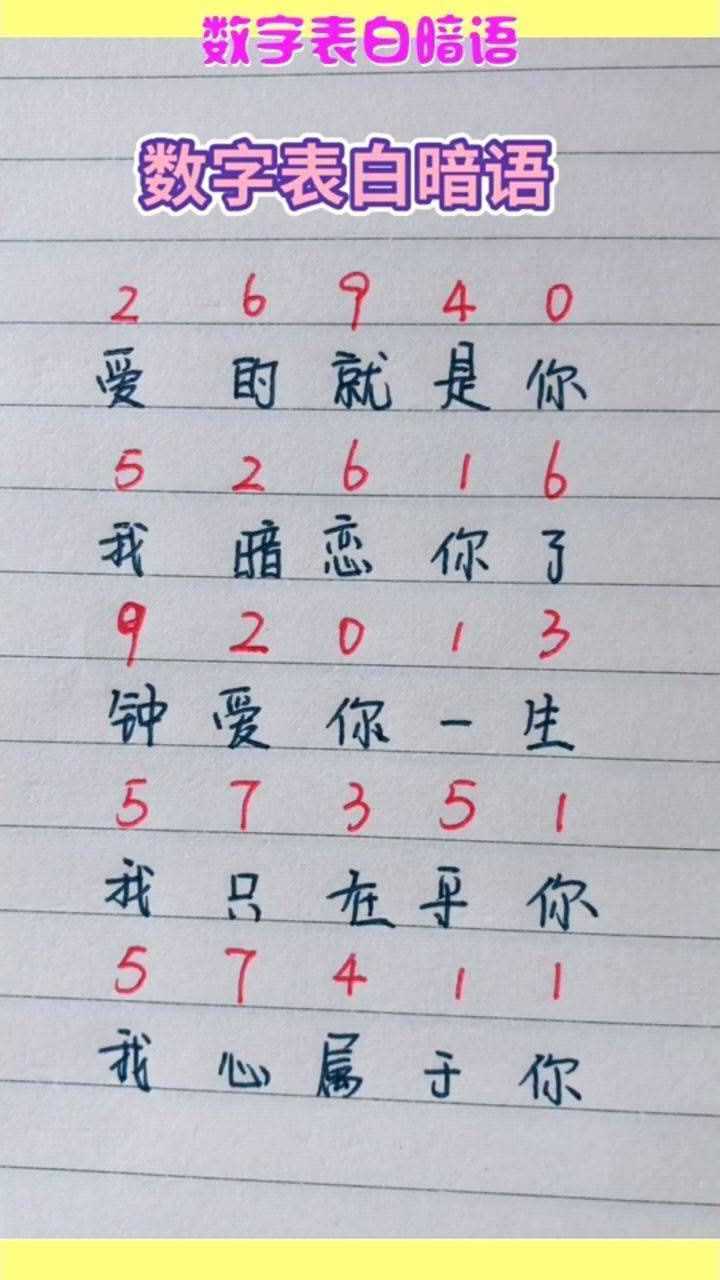 数字表白暗语
数字表白暗语
2 6 9 4 0
爱的就是你
5 2 6 1 6
我暗恋你了
9 2 0 1 3
钟爱你一生
5 7 3 5 1
我只在乎你
5 7 4 1 1
我心属于你